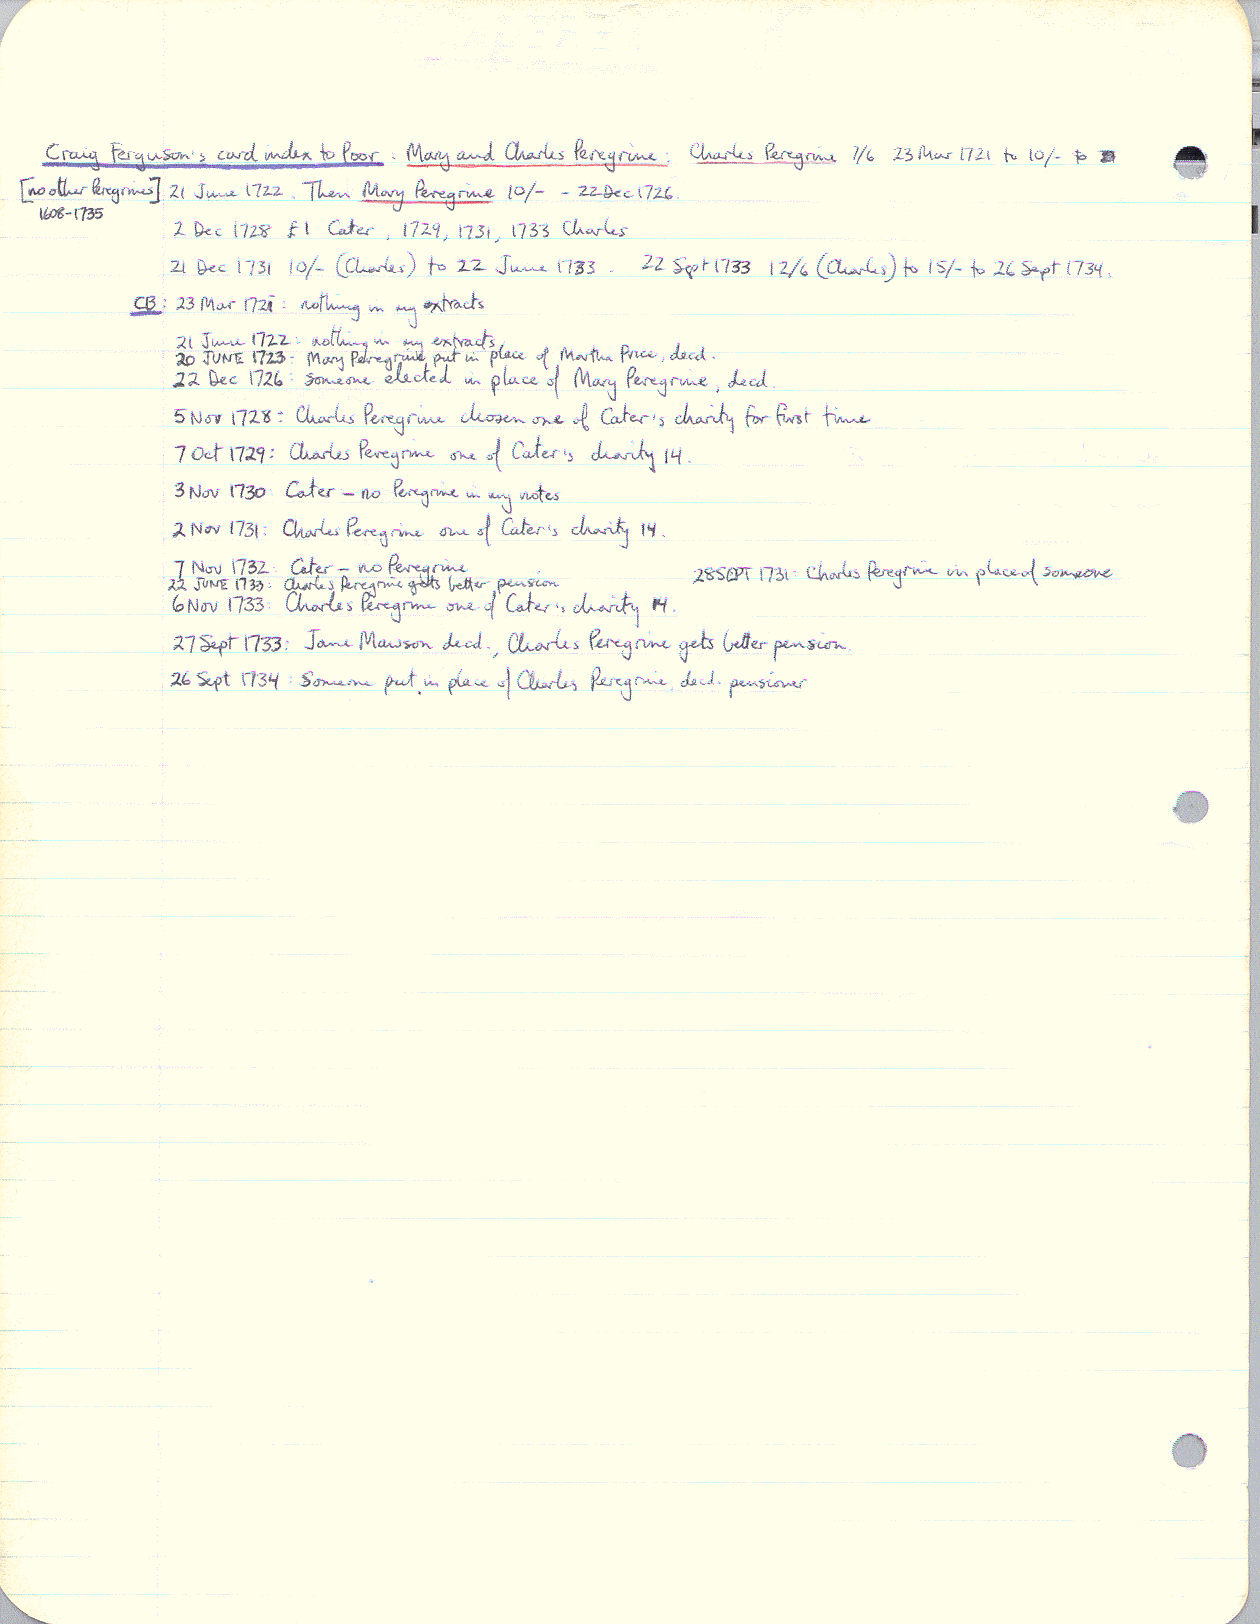 Craig Ferguson's card index to Poor : Mary and Charles Peregrine : Charles Peregrine 7/6 23 Mar 1721 to 10/- to
[no other Peregrines] 21 June 1722. Then Mary Peregrine 10/- - 22 Dec 1726.
1608-1735
2 Dec 1728 £1 Cater, 1729, 1731, 1733 Charles
21 Dec 1731 10/- (Charles) to 22 June 1733. 22 Sept 1733 12/6 (Charles) to 15/- to 26 Sept 1734.
CB: 23 Mar 1721: nothing in my extracts
21 June 1722: nothing in my extracts
20 JUNE 1723: Mary Peregrine put in place of Martha Price, decd.
22 Dec 1726: someone elected in place of Mary Peregrine, decd.
5 Nov 1728: Charles Peregrine chosen one of Cater's charity for first time
7 Oct 1729: Charles Peregrine one of Cater's charity 14.
3 Nov 1730: Cater - no Peregrine in my notes
2 Nov 1731: Charles Peregrine one of Cater's charity 14.
7 Nov 1732: Cater - no Peregrine
28 SEPT 1731: Charles Peregrine in place of someone
22 JUNE 1733: Charles Peregrine gets better pension
6 Nov 1733: Charles Peregrine one of Cater's charity 14.
27 Sept 1733: Jane Mawson decd., Charles Peregrine gets better pension.
26 Sept 1734: Someone put in place of Charles Peregrine, decd. pensioner